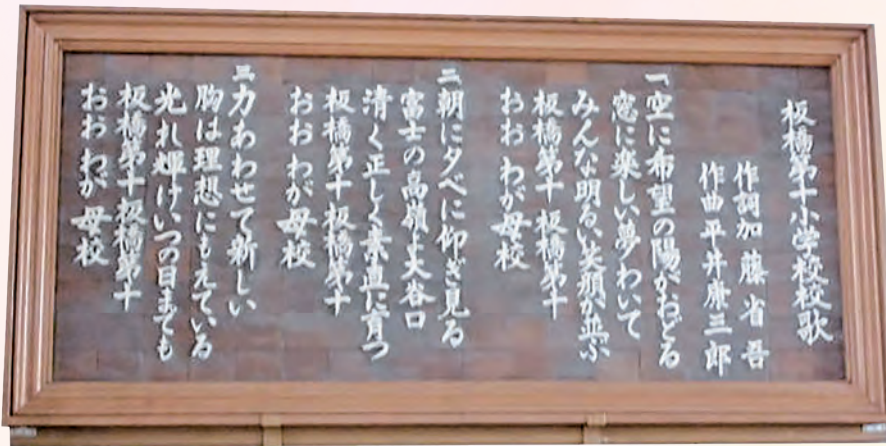 板橋第十小学校校歌
作詞加藤省吾
作曲平井康三郎
一空に希望の陽がおどる
窓に楽しい夢わいて
みんな明るい笑顔が並ぶ
板橋第十 板橋第十
おお わが母校
二朝に夕べに仰ぎ見る
富士の高嶺よ大谷口
清く正しく素直に育つ
板橋第十 板橋第十
おお わが母校
三力あわせて新しい
胸は理想にもえている
光れ輝けいつの日までも
板橋第十 板橋第十
おお わが母校